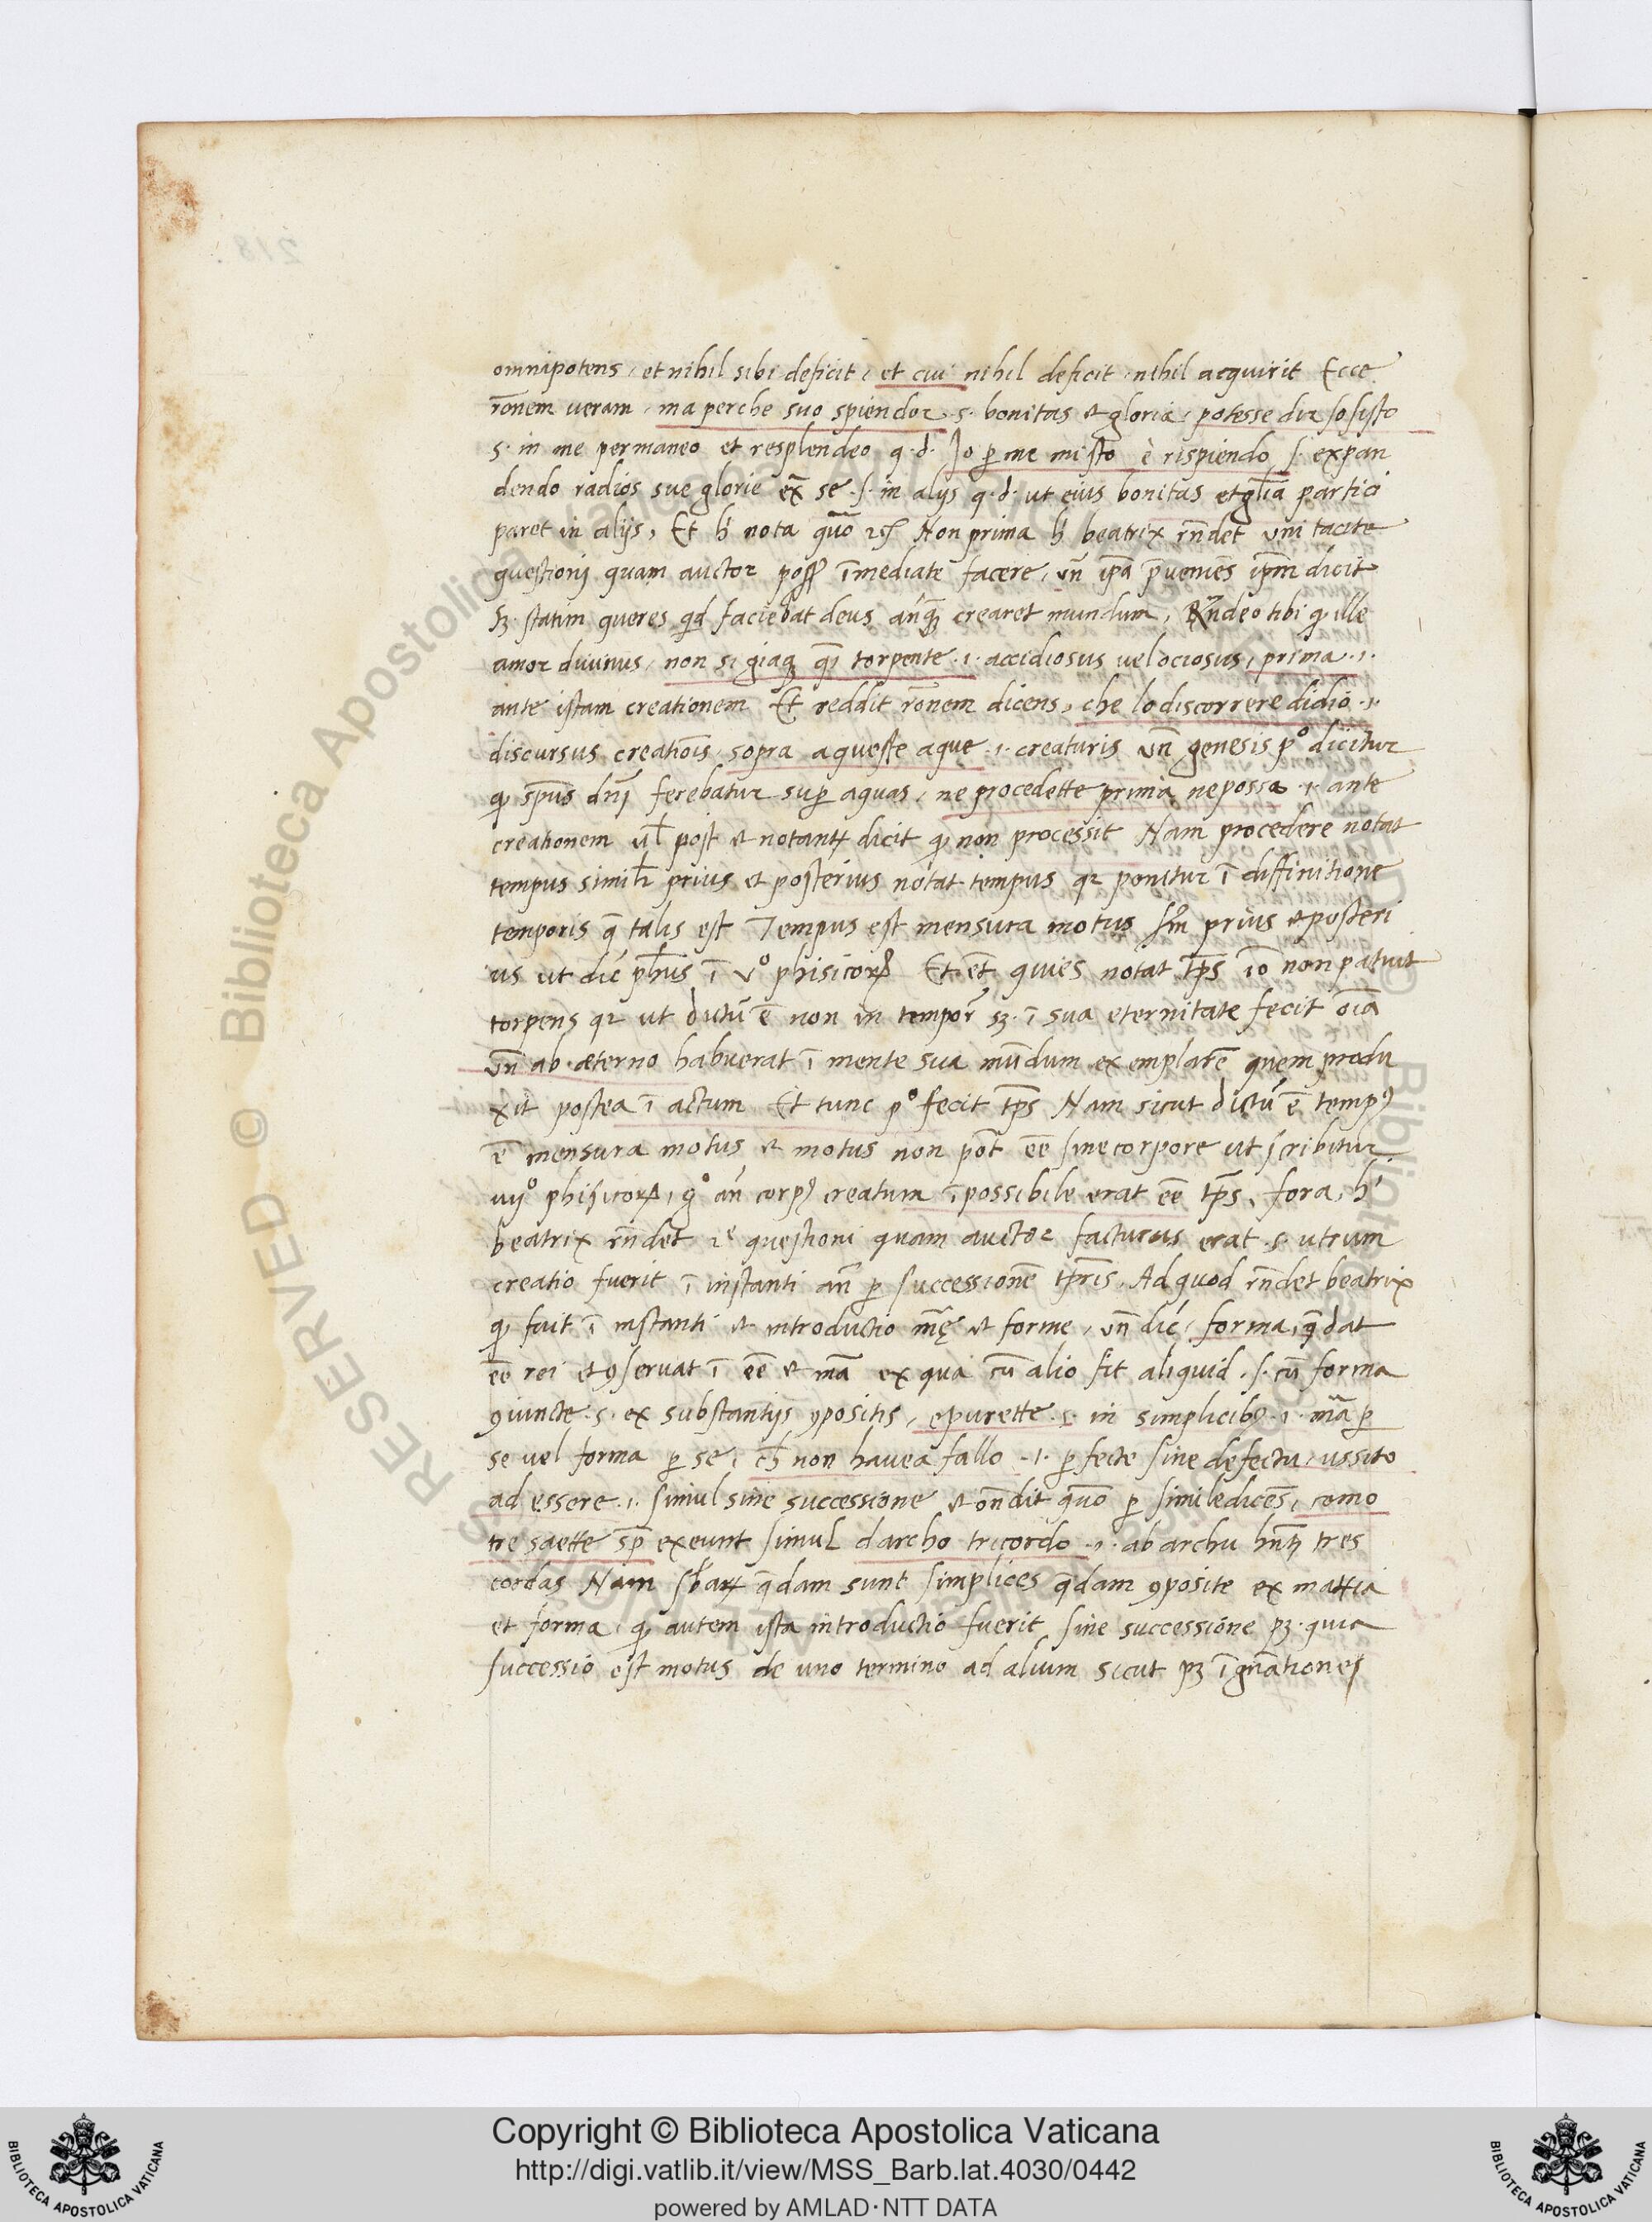 omnipotens, et nihil sibi deficit, et cui nihil deficit nihil acquirit Ecce
rōnem ueram, ma perche suo spiendor .s. bonitas et gloria, potesse dir sosisto
s. in me permaneo et resplendeo q.d. Jo ꝑ me misto è rispiendo .s. expan
dendo radios sue glorie ex̄ se .s. in alijs q.d. ut eius bonitas et gl̄ia partici
paret in alijs, Et h̄ nota quō Non prima h̄ beatrix rn̄det uni tacite
questioni quam auctor īmediate facere, un̄ ip̄a p̄uemēs ip̄m dicit
Sꝫ statim queres qd faciebat deus an̄qꝫ crearet mundum, Rn̄deo tibi ꝙ ille
amor diuinus, non si giaqꝫ q̄i torpente .i. accidiosus uel ociosus, prima .i.
ante istam creationem Et reddit rōnem dicens, che lo discorrere didio .i.
discursus creatiōis sopra a queste aque .i. creaturis un̄ genesis pº dicitur
ꝙ sp̄us dn̄i ferebatur suꝑ aquas, ne procedette prima ne possa .i. ante
creationem ul̄ post et notantꝫ dicit ꝙ non processit Nam procedere notat
tempus simil̄r prius et posterius notat tempus qꝛ ponitur ī diffinitione
temporis q̄ talis est Tempus est mensura motus sm̄ prius et posteri
us ut dic̄ ph̄us ī vº phisicoꝝ Et et̄ quies notat tp̄s iō non patuit
torpens qꝛ ut dictū ē non in tempor̄ sꝫ ī sua eternitate fecit oīa
un̄ ab æterno habuerat ī mente sua mūdum exemplarē quem produ
xit postea ī actum Et tunc pº fecit tp̄s Nam sicut dictū ē tempꝰ
ē mensura motus et motus non pōt ēe sine corpore ut scribitur
uijº phisicoꝝ, gº an̄ corpꝰ creatum īpossibile erat ēe tp̄s, fora, h̄
beatrix rn̄det 2ᵉ questioni quam auctor facturus erat .s. utrum
creatio fuerit ī instanti an̄ ꝑ successionē tp̄ris, Ad quod rn̄det beatrix
ꝙ fuit ī instanti et introductio mr̄ę et forme, un̄ dic̄, forma, q̄ dat
ēe rei et ꝯseruat ī ēe et mā ex qua cū alio fit aliquid .s. cū forma
ꝯiuncte .s. ex substantijs ꝯpositis, epurette .s. in simplicibꝰ .i. mā ꝑ
se uel forma ꝑ se, ch̄ non hauea fallo .i. ꝑfecte sine defectu, ussito
ad essere .i. simul sine successione et on̄dit quō ꝑ simile dicēs, como
tre saette sp̄ exeunt simul darcho tricordo .i. ab archu hn̄tꝫ tres
cordas Nam q̄dam sunt simplices q̄dam ꝯposite ex mattia
et forma, ꝙ autem ista introductio fuerit sine successione pꝫ quia
successio est motus de uno termino ad alium sicut pꝫ ī gn̄ationes
Copyright © Biblioteca Apostolica Vaticana
http://digi.vatlib.it/view/MSS_Barb.lat.4030/0442
powered by AMLAD·NTT DATA